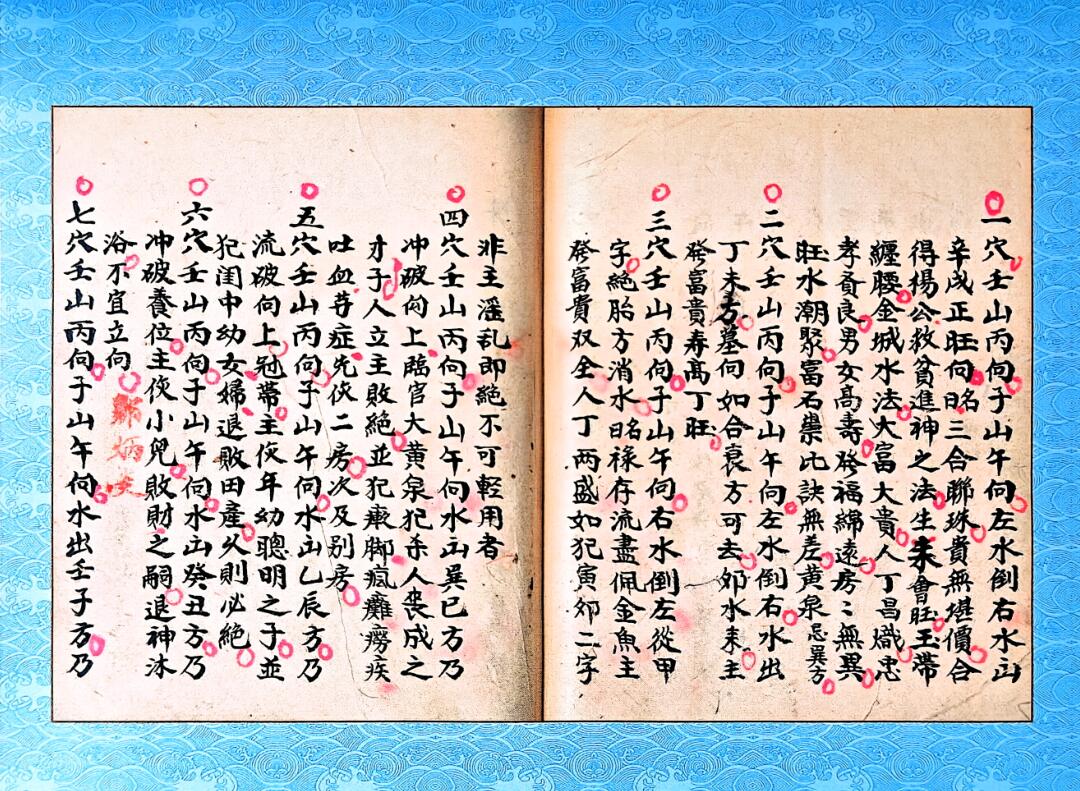 一穴壬山丙向子山午向左水倒右水出
辛戌正旺向名曰三合聯珠貴無堪價合
得楊公救貧進神之法生來會旺玉帶
纏腰金城水法大富大貴人丁昌熾忠
孝賢良男女高壽發福綿遠房々無異
旺水潮聚富石崇比訣無差黃泉忌巽方
二穴壬山丙向子山午向左水倒右水出
丁未方墓向如合衰方可去郊水来主
發富貴壽高丁旺
三穴壬山丙向子山午向右水倒左從甲
字絕胎方消水名曰禄存流盡佩金魚主
發富貴双全人丁两盛如犯寅郊二字
非主滛乱即絕不可輕用者
四穴壬山丙向子山午向水出巽巳方乃
冲破向上臨官大黃泉犯杀人丧成之
才子人立主敗絕並犯瘷脚瘋癱癆疾
吐血等症先伤二房次及别房
五穴壬山丙向子山午向水出乙辰方乃
流破向上冠帶主伤年幼聰明之子並
犯闺中幼女婦退敗田產久則必絕
六穴壬山丙向子山午向水出癸丑方乃
冲破養位主伤小兒敗財之嗣退神沐
浴不宜立向
七穴壬山丙向子山午向水出壬子方乃